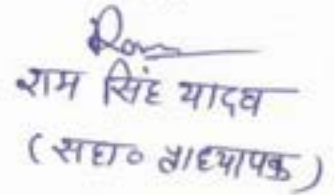 Ram
राम सिंह यादव
(सहा० अध्यापक)